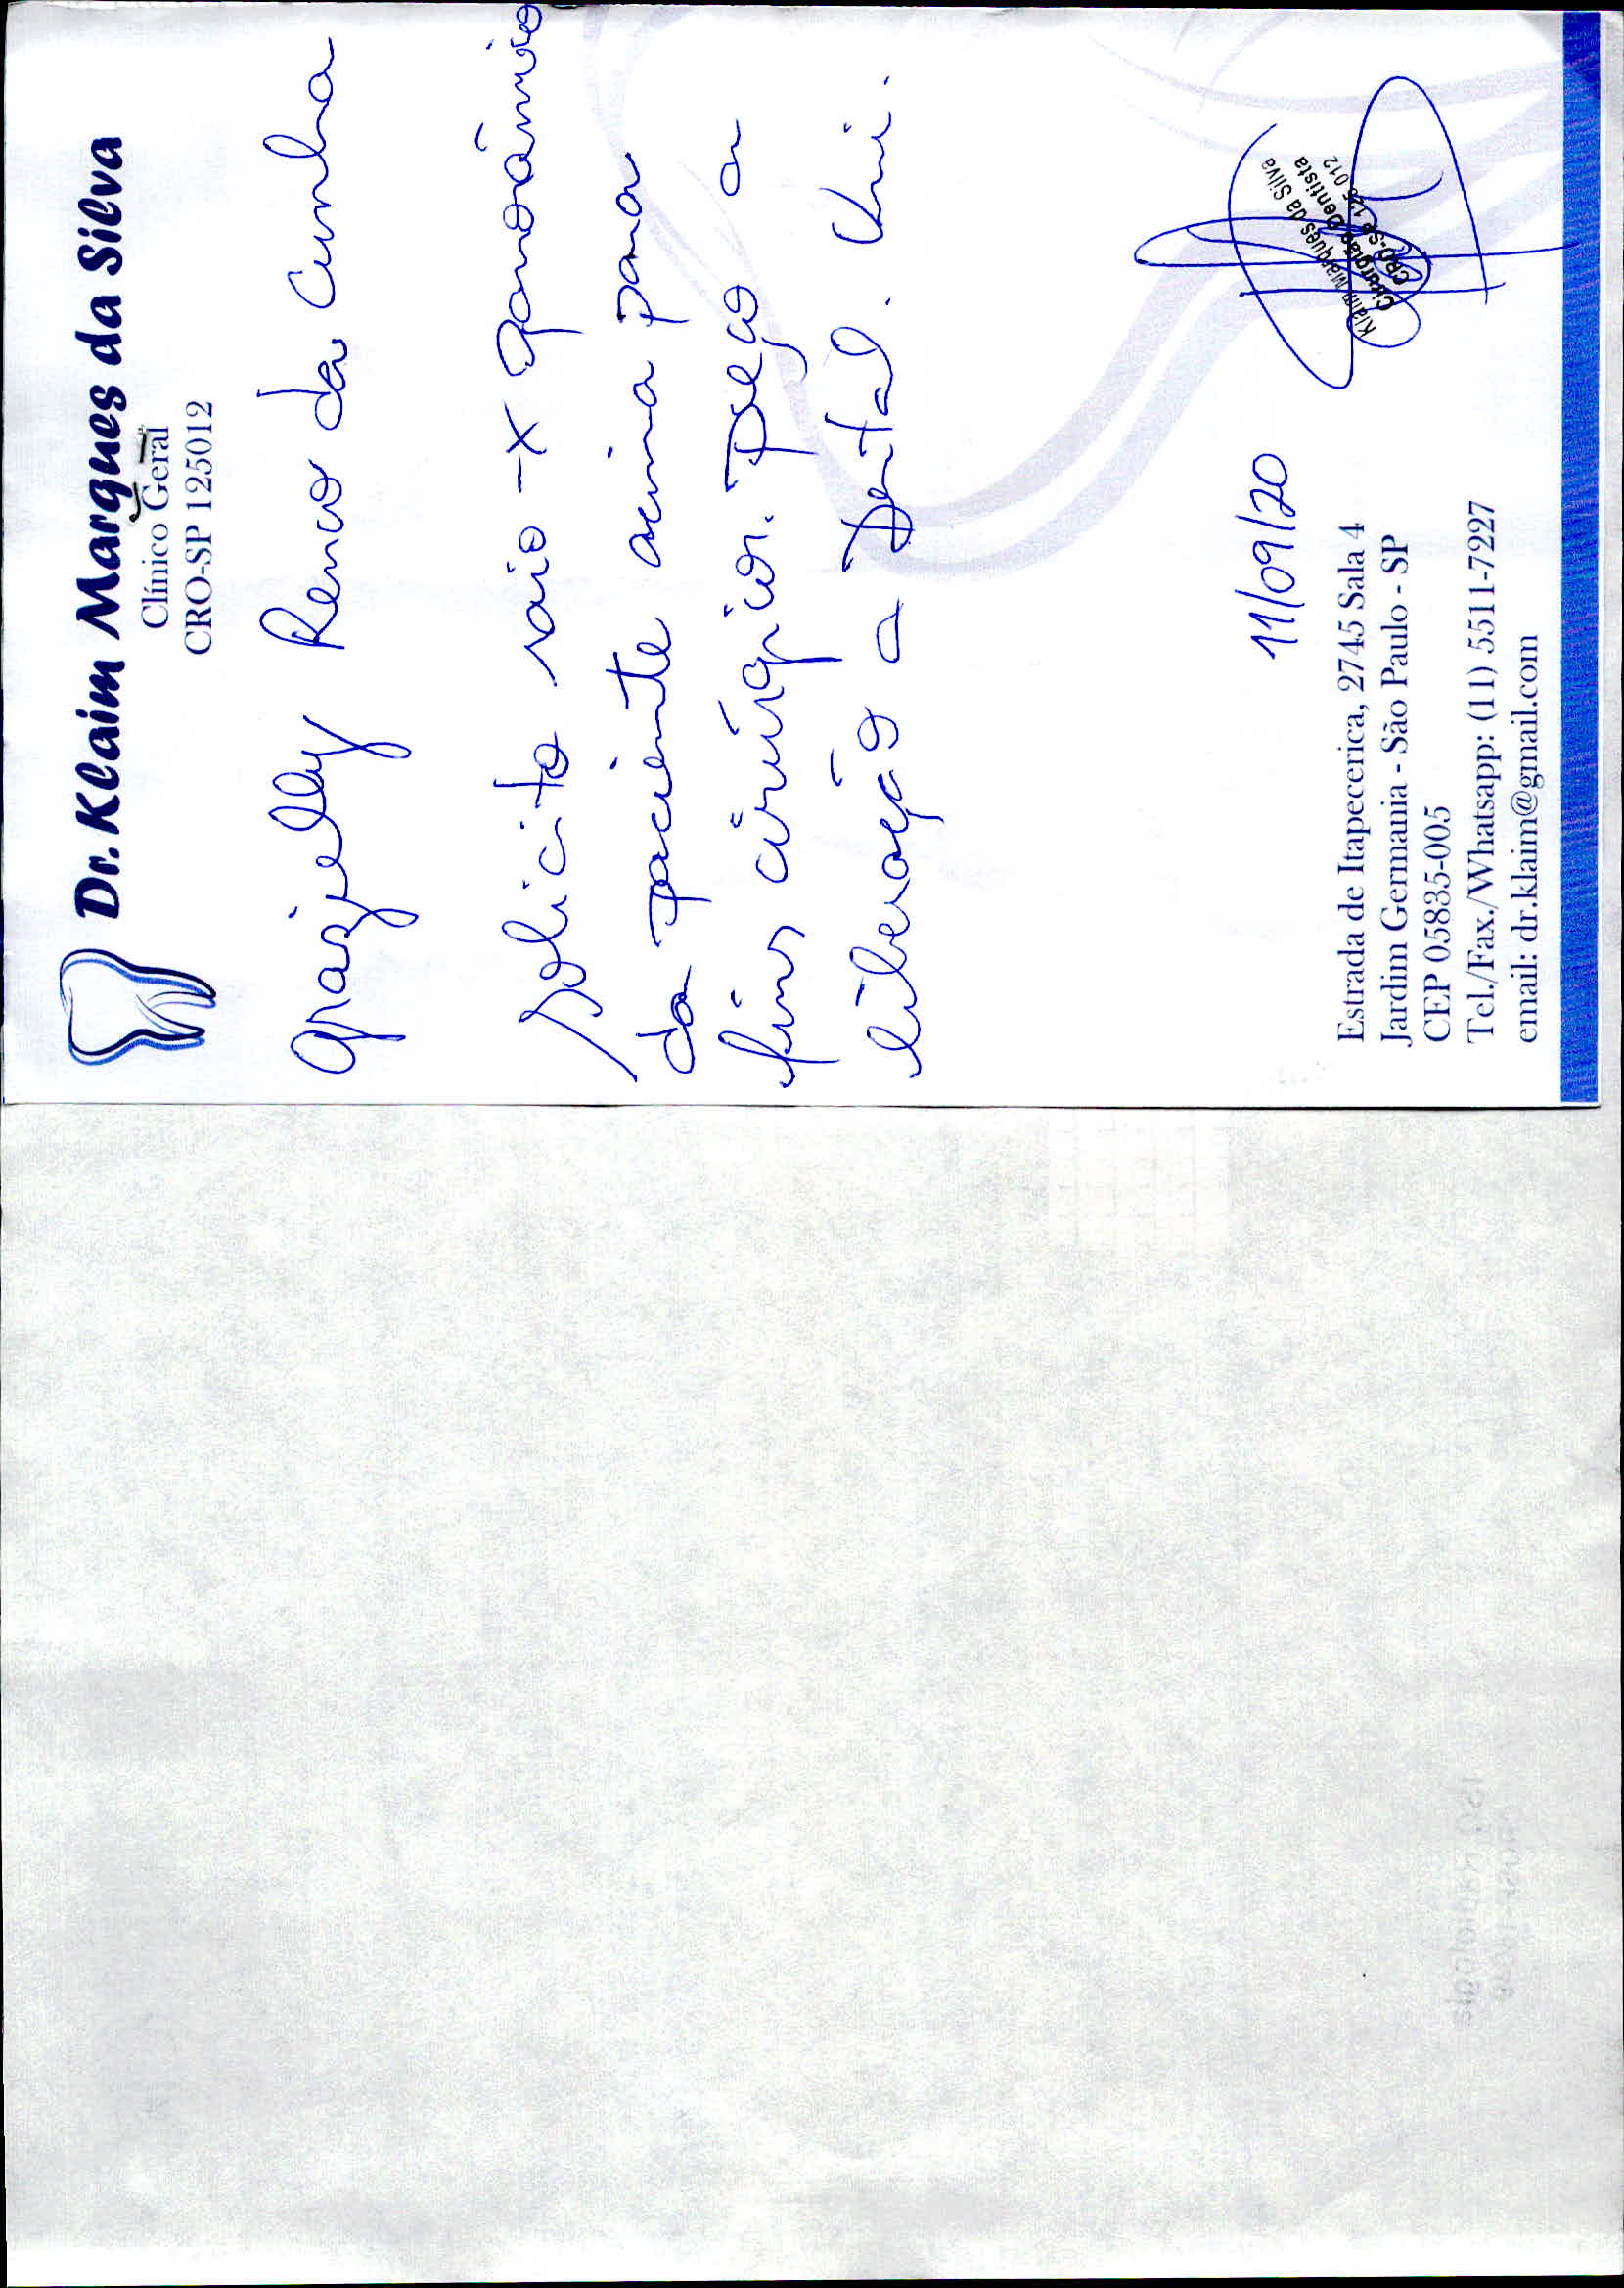 Dr. Klaim Marques da Silva
Clínico Geral
CRO-SP 125012
Grazielly Renco da Cunha
Solicito raio-x panorâmico
da paciente acima para
fins cirúrgicos. Peço a
liberação a Dental Uni.
11/09/20
Klaim Marques da Silva
Cirurgião Dentista
CRO-SP 125 012
Estrada de Itapecerica, 2745 Sala 4
Jardim Germania - São Paulo - SP
CEP 05835-005
Tel./Fax./Whatsapp: (11) 5511-7227
email: dr.klaim@gmail.com